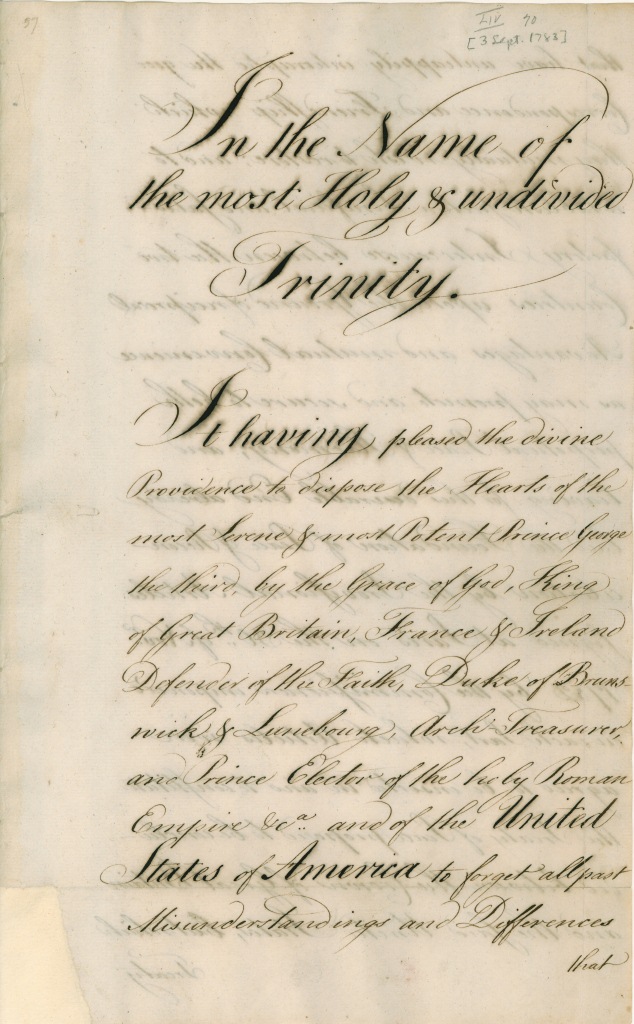 37
LIV 70
[3 Sept. 1783]
In the Name of
the most Holy & undivided
Trinity.
It having pleased the divine
Providence to dispose the Hearts of the
most Serene & most Potent Prince George
the third, by the Grace of God, King
of Great Britain, France & Ireland
Defender of the Faith, Duke of Bruns
wick & Lunebourg, Arch-Treasurer,
and Prince Elector of the holy Roman
Empire &ca. and of the United
States of America to forget all past
Misunderstandings and Differences
that